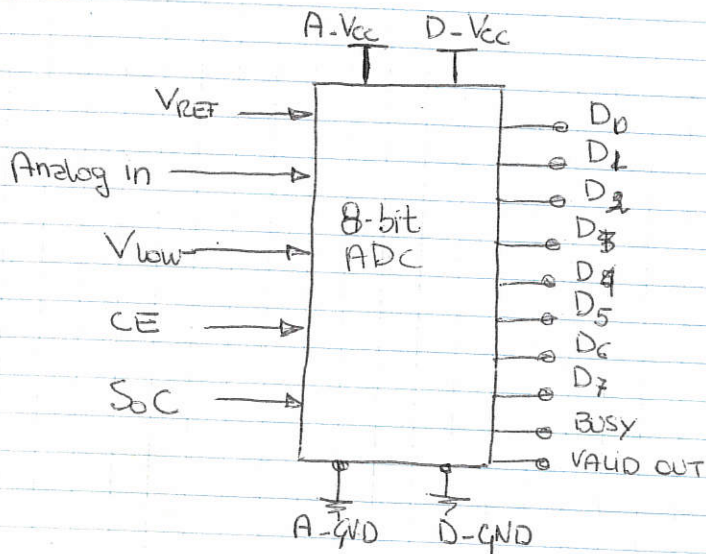 A-Vcc D-Vcc
VREF
Analog in
VLOW
CE
SoC
8-bit
ADC
D0
D1
D2
D3
D4
D5
D6
D7
BUSY
VALID OUT
A-GND D-GND